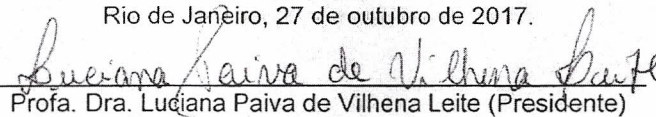 Rio de Janeiro, 27 de outubro de 2017.
Luciana Paiva de Vilhena Leite
Profa. Dra. Luciana Paiva de Vilhena Leite (Presidente)